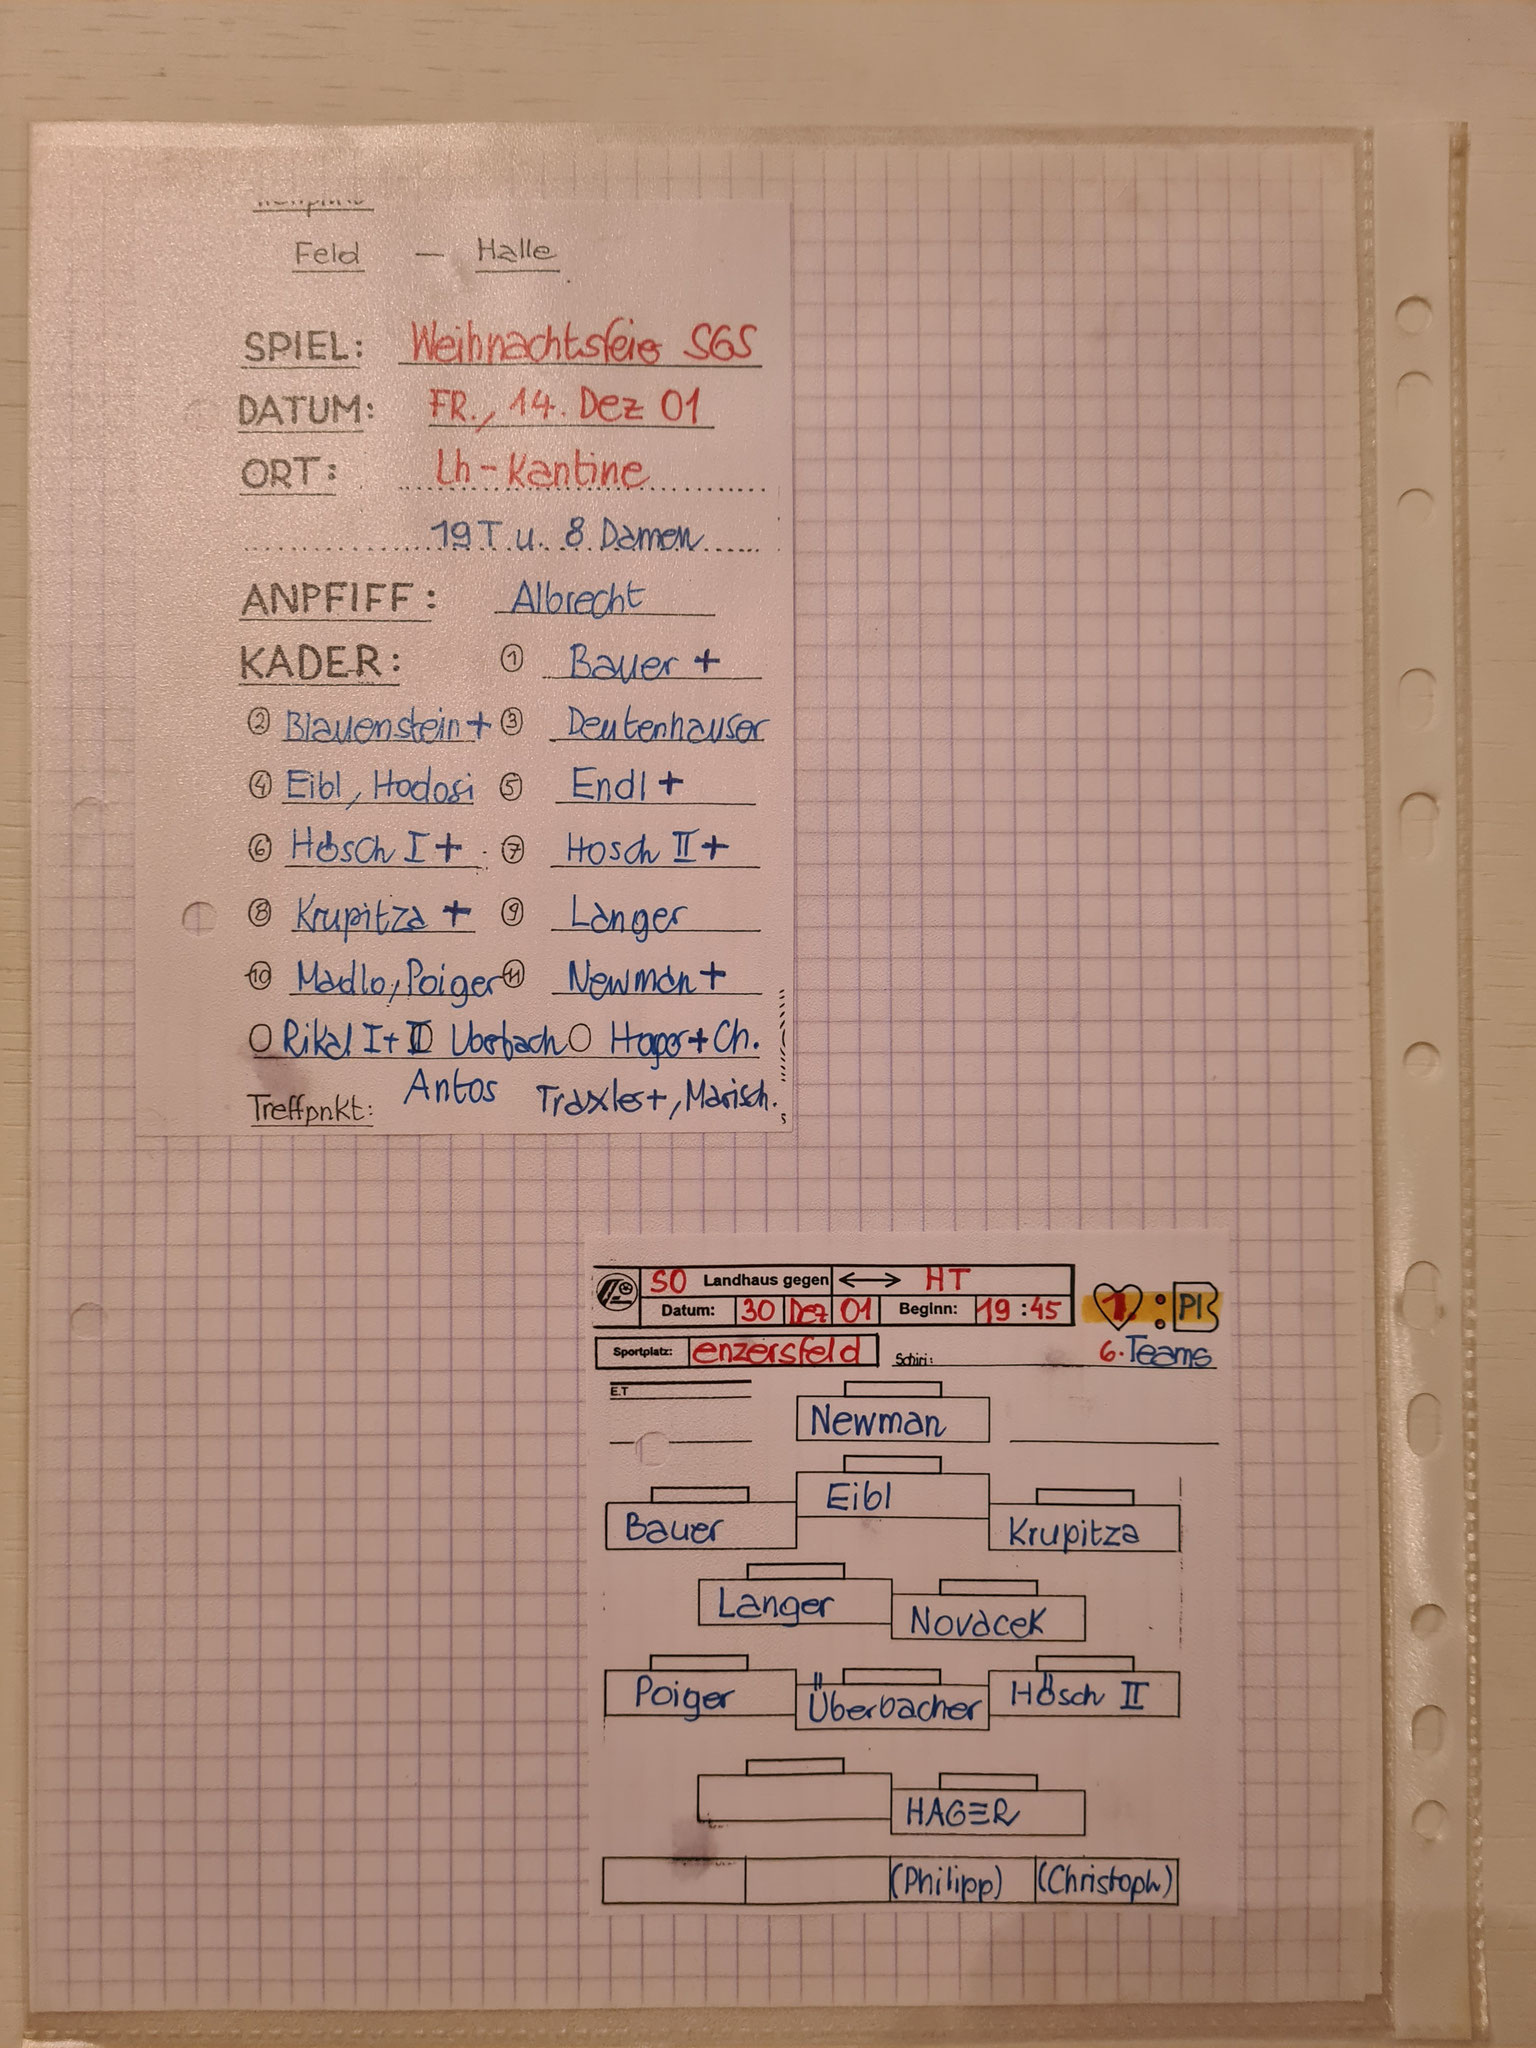 Feld – Halle
SPIEL: Weihnachtsfeier SGS
DATUM: FR., 14. Dez 01
ORT: Lh-Kantine
19 T u. 8 Damen
ANPFIFF: Albrecht
KADER: ① Bauer +
② Blauenstein + ③ Deutenhauser
④ Eibl, Hodosi ⑤ Endl +
⑥ Hösch I + ⑦ Hosch II +
⑧ Krupitza + ⑨ Langer
⑩ Madlo, Poiger ⑪ Newman +
Rikal I + II Uberbach Hager + Ch.
Antos Traxler +, Marisch.
Treffpnkt:
SO Landhaus gegen ↔ HT
Datum: 30 Dez 01 Beginn: 19:45 1. : Pl
Sportplatz: enzersfeld Schiri: 6. Teams
E.T
Newman
Eibl
Bauer Krupitza
Langer Novacek
Poiger Überbacher Hösch II
HAGER
(Philipp) (Christoph)